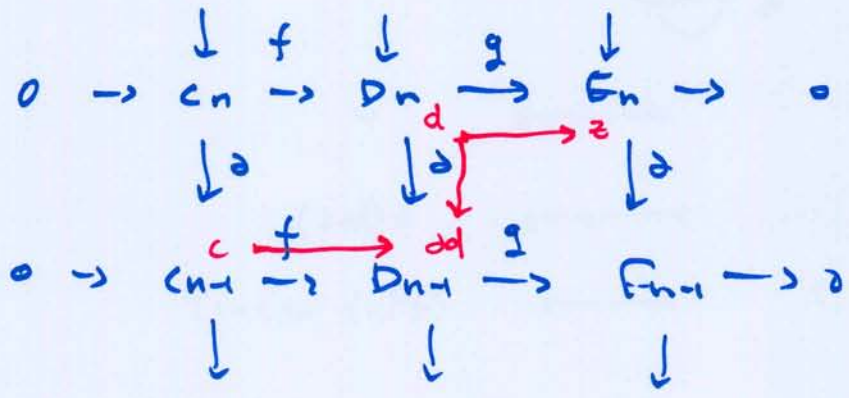 ↓ f ↓ g ↓
0 → Cn → Dn → En → 0
d z
↓∂ ↓∂ ↓∂
c f ∂d g
0 → Cn-1 → Dn-1 → En-1 → 0
↓ ↓ ↓